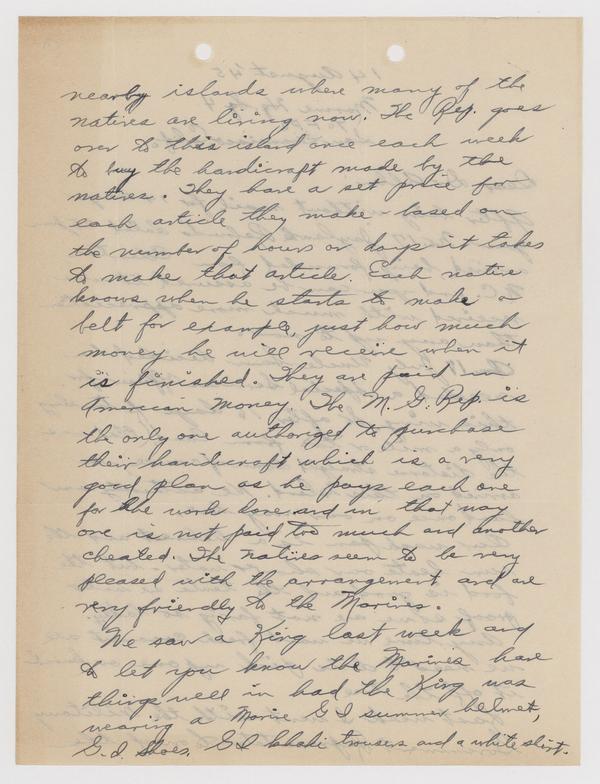 nearby islands where many of the
natives are living now. The Rep. goes
over to this island once each week
to buy the handicraft made by the
natives. They have a set price for
each article they make - based on
the number of hours or days it takes
to make that article. Each native
knows when he starts to make a
belt for example, just how much
money he will receive when it
is finished. They are paid in
American money. The M. G. Rep. is
the only one authorized to purchase
their handicraft which is a very
good plan as he pays each one
for the work done and in that way
one is not paid too much and another
cheated. The natives seem to be very
pleased with the arrangement and are
very friendly to the Marines.
We saw a King last week and
to let you know the Marines have
things well in had the King was
wearing a Marine G I summer helmet,
G. I. Shoes, G I khaki trousers and a white shirt.